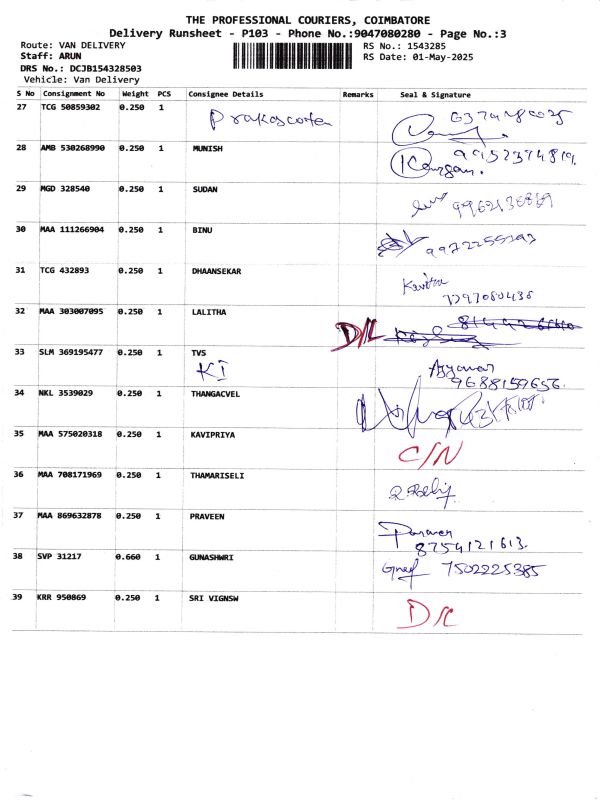 THE PROFESSIONAL COURIERS, COIMBATORE
Delivery Runsheet - P103 - Phone No.:9047080280 - Page No.:3
Route: VAN DELIVERY RS No.: 1543285
Staff: ARUN RS Date: 01-May-2025
DRS No.: DCJB154328503
Vehicle: Van Delivery
S No Consignment No Weight PCS Consignee Details Remarks Seal & Signature
27 TCG 50859302 0.250 1
28 AMB 530268990 0.250 1 MUNISH
29 MGD 328540 0.250 1 SUDAN
30 MAA 111266904 0.250 1 BINU
31 TCG 432893 0.250 1 DHAANSEKAR
Kavitha
32 MAA 303007095 0.250 1 LALITHA
D/L
33 SLM 369195477 0.250 1 TVS
KI
9688159656.
34 NKL 3539029 0.250 1 THANGACVEL
35 MAA 575020318 0.250 1 KAVIPRIYA
C/N
36 MAA 708171969 0.250 1 THAMARISELI
37 MAA 869632878 0.250 1 PRAVEEN
8754121613.
38 SVP 31217 0.660 1 GUNASHWRI
7502225385
39 KRR 950869 0.250 1 SRI VIGNSW